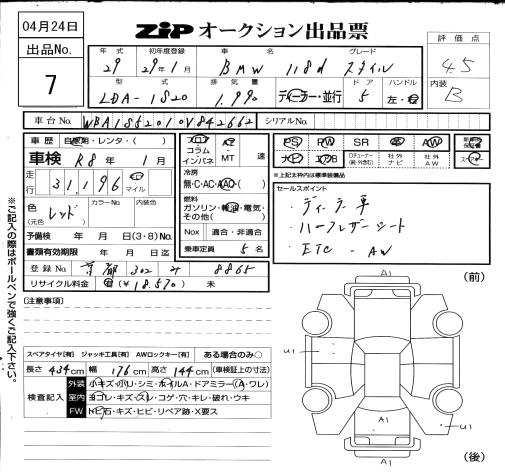 04月24日
ZiP オークション出品票
出品No. 7
評価点 4.5
内装 B
年式 初年度登録 車名 グレード
29 29年1月 BMW 118d スタイル
型式 排気量 ドア ハンドル
LDA-1S20 1,990 ディーラー・並行 5 左・右
車台No. WBA1S52010V842662 シリアルNo.
車歴 自家用・レンタ・( )
車検 R8年 1月
走行 31,196 km マイル
色 (元色) レッド カラーNo. 内装色
予備検 年 月 日(3・8)No.
書類有効期限 年 月 日迄
登録No. 京都 302 す 8865
リサイクル料金 済(¥18,570) 未
フロア コラム インパネ AT MT 速
冷房 無・C・AC・AAC・( )
燃料 ガソリン・軽油・電気・その他( )
Nox 適合・非適合
乗車定員 5名
PS PW SR 革 AW
ナビ エアB 社外ナビ 社外AW
※上記太枠内は標準装備品
セールスポイント
・ディーラー車
・ハーフレザーシート
・ETC・AW
※ご記入の際はボールペンで強くご記入下さい。
〔注意事項〕
スペアタイヤ[有] ジャッキ工具[有] AWロックキー[有] ある場合のみ○
長さ 434cm 幅 176cm 高さ 144cm (車検証上の寸法)
検査記入
外装 小キズ・小リ・シミ・ホイルA・ドアミラー(A・ワレ)
室内 ヨゴレ・キズ・スレ・コゲ・穴・キレ・破れ・ウキ
FW トビ石・キズ・ヒビ・リペア跡・X要ス
(前)
A1
U1
A1
U1
A1
(後)